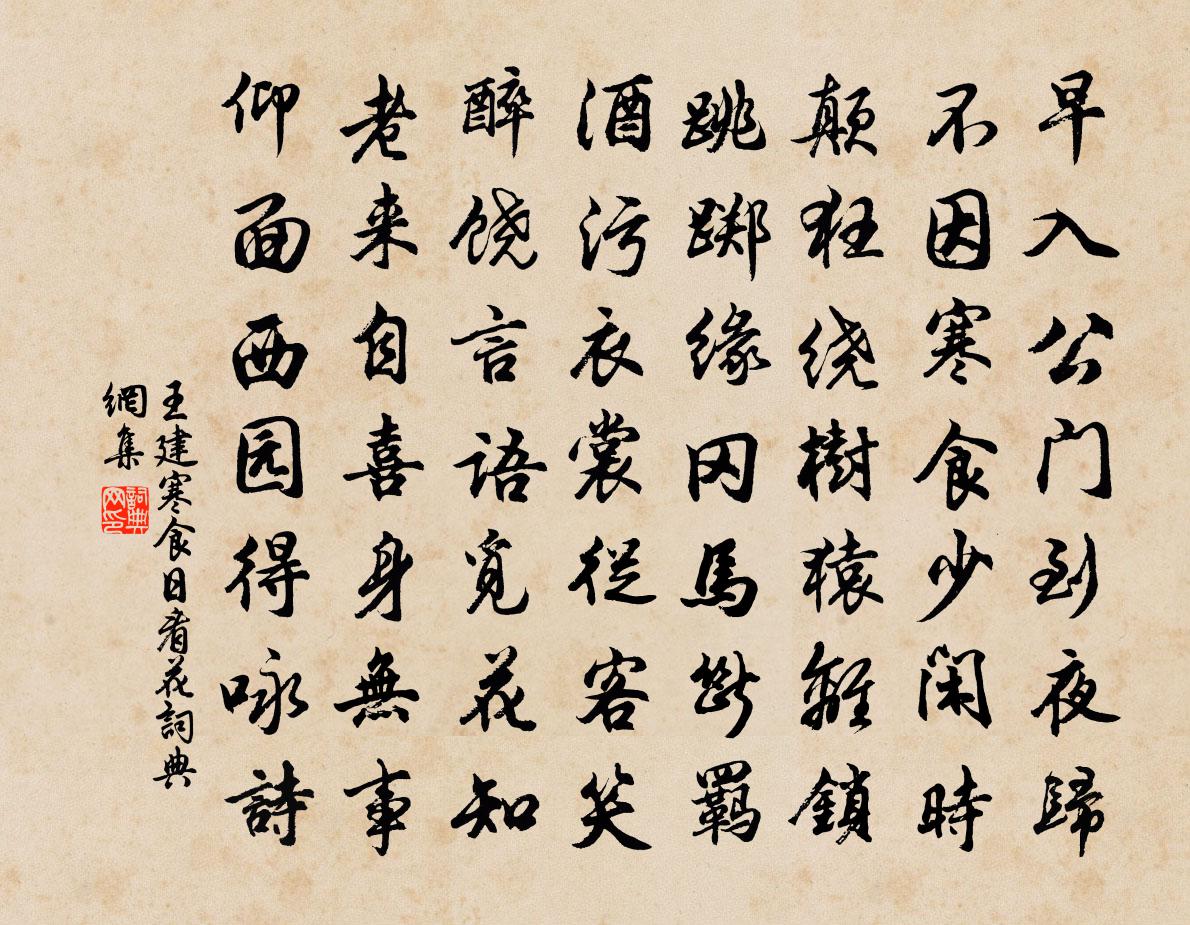 早入公门到夜歸
不因寒食少闲時
颠狂绕樹猿離鎖
跳踯缘冈馬斷羈
酒污衣裳從客笑
醉饶言語覓花知
老来自喜身無事
仰面西园得咏詩
王建寒食日看花詞典
網集
詞典网印